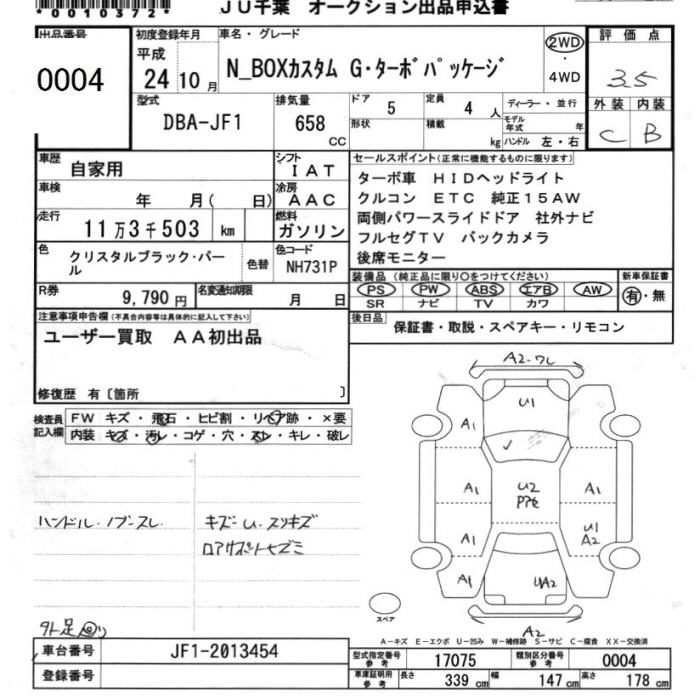 *0010372*
JU千葉 オークション出品申込書
出品番号 0004
初度登録年月 平成 24 10 月
車名・グレード N_BOXカスタム G・ターボパッケージ
2WD ・ 4WD
評価点 3.5
外装 内装
C B
型式 DBA-JF1
排気量 658 CC
ドア 5 定員 4 人
形状 積載 kg
ディーラー・並行
モデル年式 年
ハンドル 左・右
車歴 自家用
シフト IAT
車検 年 月( 日)
冷房 AAC
走行 11万3千503 km
燃料 ガソリン
色 クリスタルブラック・パール 色替
色コード NH731P
R券 9,790円
名変通知期限 月 日
セールスポイント(正常に機能するものに限ります)
ターボ車 HIDヘッドライト
クルコン ETC 純正15AW
両側パワースライドドア 社外ナビ
フルセグTV バックカメラ
後席モニター
装備品 (純正品に限り○をつけてください) 新車保証書
PS PW ABS エアB AW 有・無
SR ナビ TV カワ
後日品 保証書・取説・スペアキー・リモコン
注意事項申告欄(不具合内容等は具体的に記入して下さい)
ユーザー買取 AA初出品
修復歴 有〔箇所 〕
検査員記入欄
FW キズ・飛石・ヒビ割・リペア跡・×要
内装 キズ・汚レ・コゲ・穴・スレ・キレ・破レ
ハンドル・ノブスレ
キズ・U・スリキズ
ロアサポートヒズミ
外足回り
A2・ワレ
U1
A1
A1 U2 A1
U1
A2
A1 UA2 A1
A2
スペア
A－キズ E－エクボ U－凹み W－補修跡 S－サビ C－腐食 XX－交換済
車台番号 JF1-2013454
登録番号
型式指定番号 参考 17075 類別区分番号 参考 0004
車庫証明用 参考 長さ 339 cm 幅 147 cm 高さ 178 cm